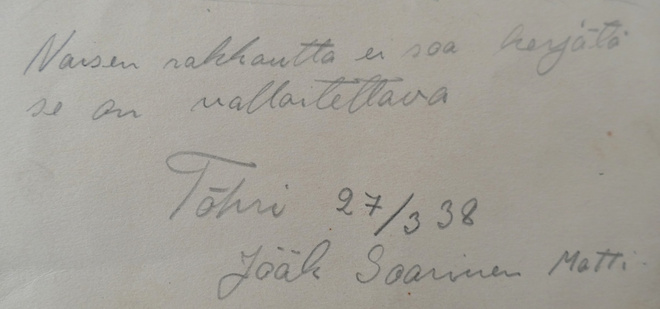 Naisen rakkautta ei saa kerjätä
se on valloitettava
Töhri 27/3 38
Jääk Saarinen Matti